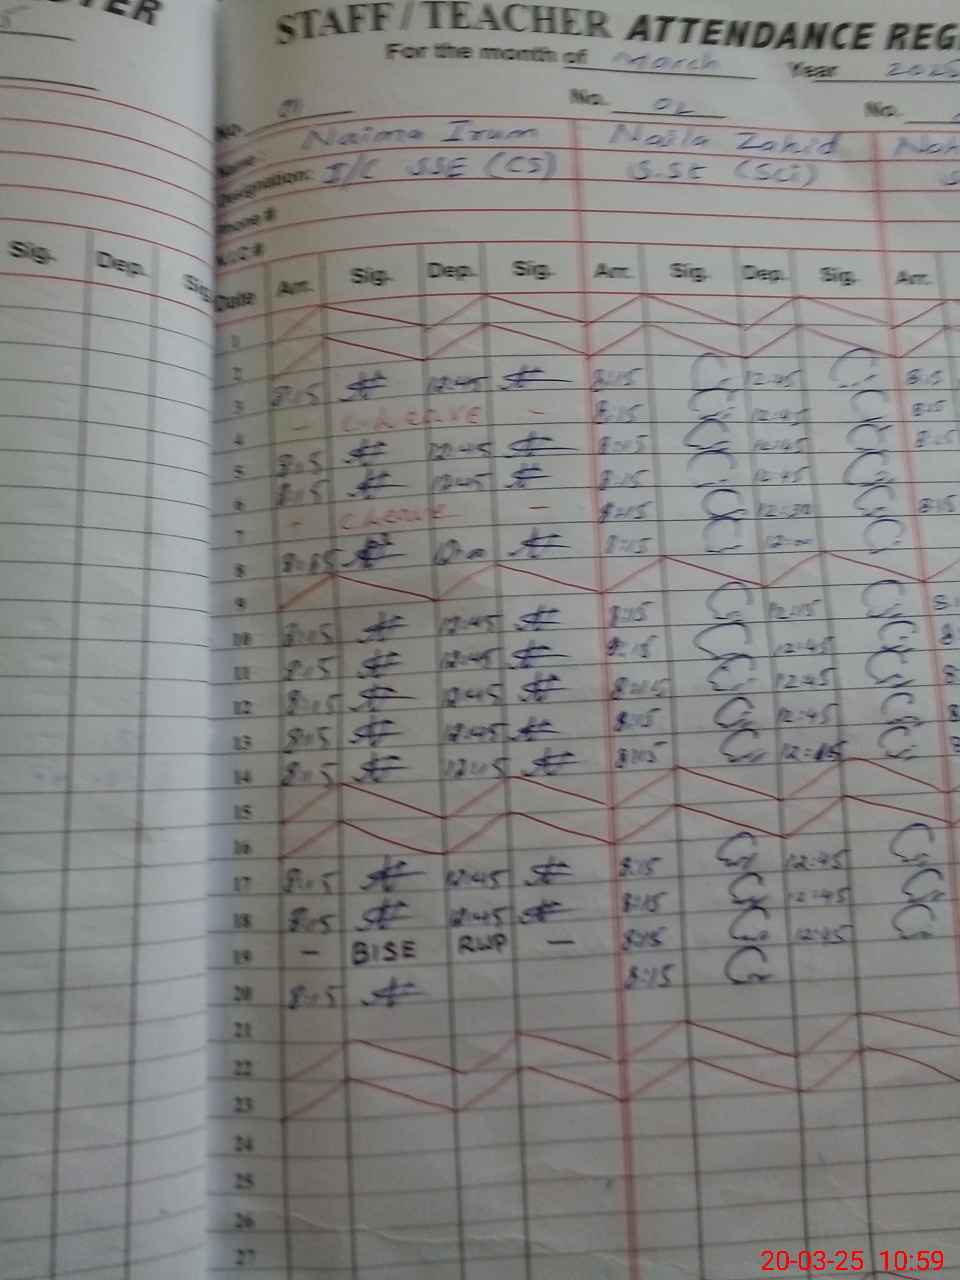 STAFF / TEACHER ATTENDANCE REG
For the month of March Year 2025
No. 01 No. 02 No.
Name: Naima Irum Naila Zahid
Designation: I/C SSE (CS) S.SE (Sci)
Phone #
N.I.C #
Sig. Dep. Sig.
Date Arr. Sig. Dep. Sig. Arr. Sig. Dep. Sig. Arr.
1
2
3 8:15 12:45 8:15 12:45 8:15
4 - C-Leave - 8:15 12:45 8:15
5 8:15 12:45 8:15 12:45 8:15
6 8:15 12:45 8:15 12:45
7 - C Leave - 8:15 12:30 8:15
8 8:15 12:00 8:15 12:00
9
10 8:15 12:45 8:15 12:45
11 8:15 12:45 8:15 12:45
12 8:15 12:45 8:15 12:45
13 8:15 12:45 8:15 12:45
14 8:15 12:15 8:15 12:15
15
16
17 8:15 12:45 8:15 12:45
18 8:15 12:45 8:15 12:45
19 - BISE RWP - 8:15 12:45
20 8:15 8:15
21
22
23
24
25
26
27
20-03-25 10:59